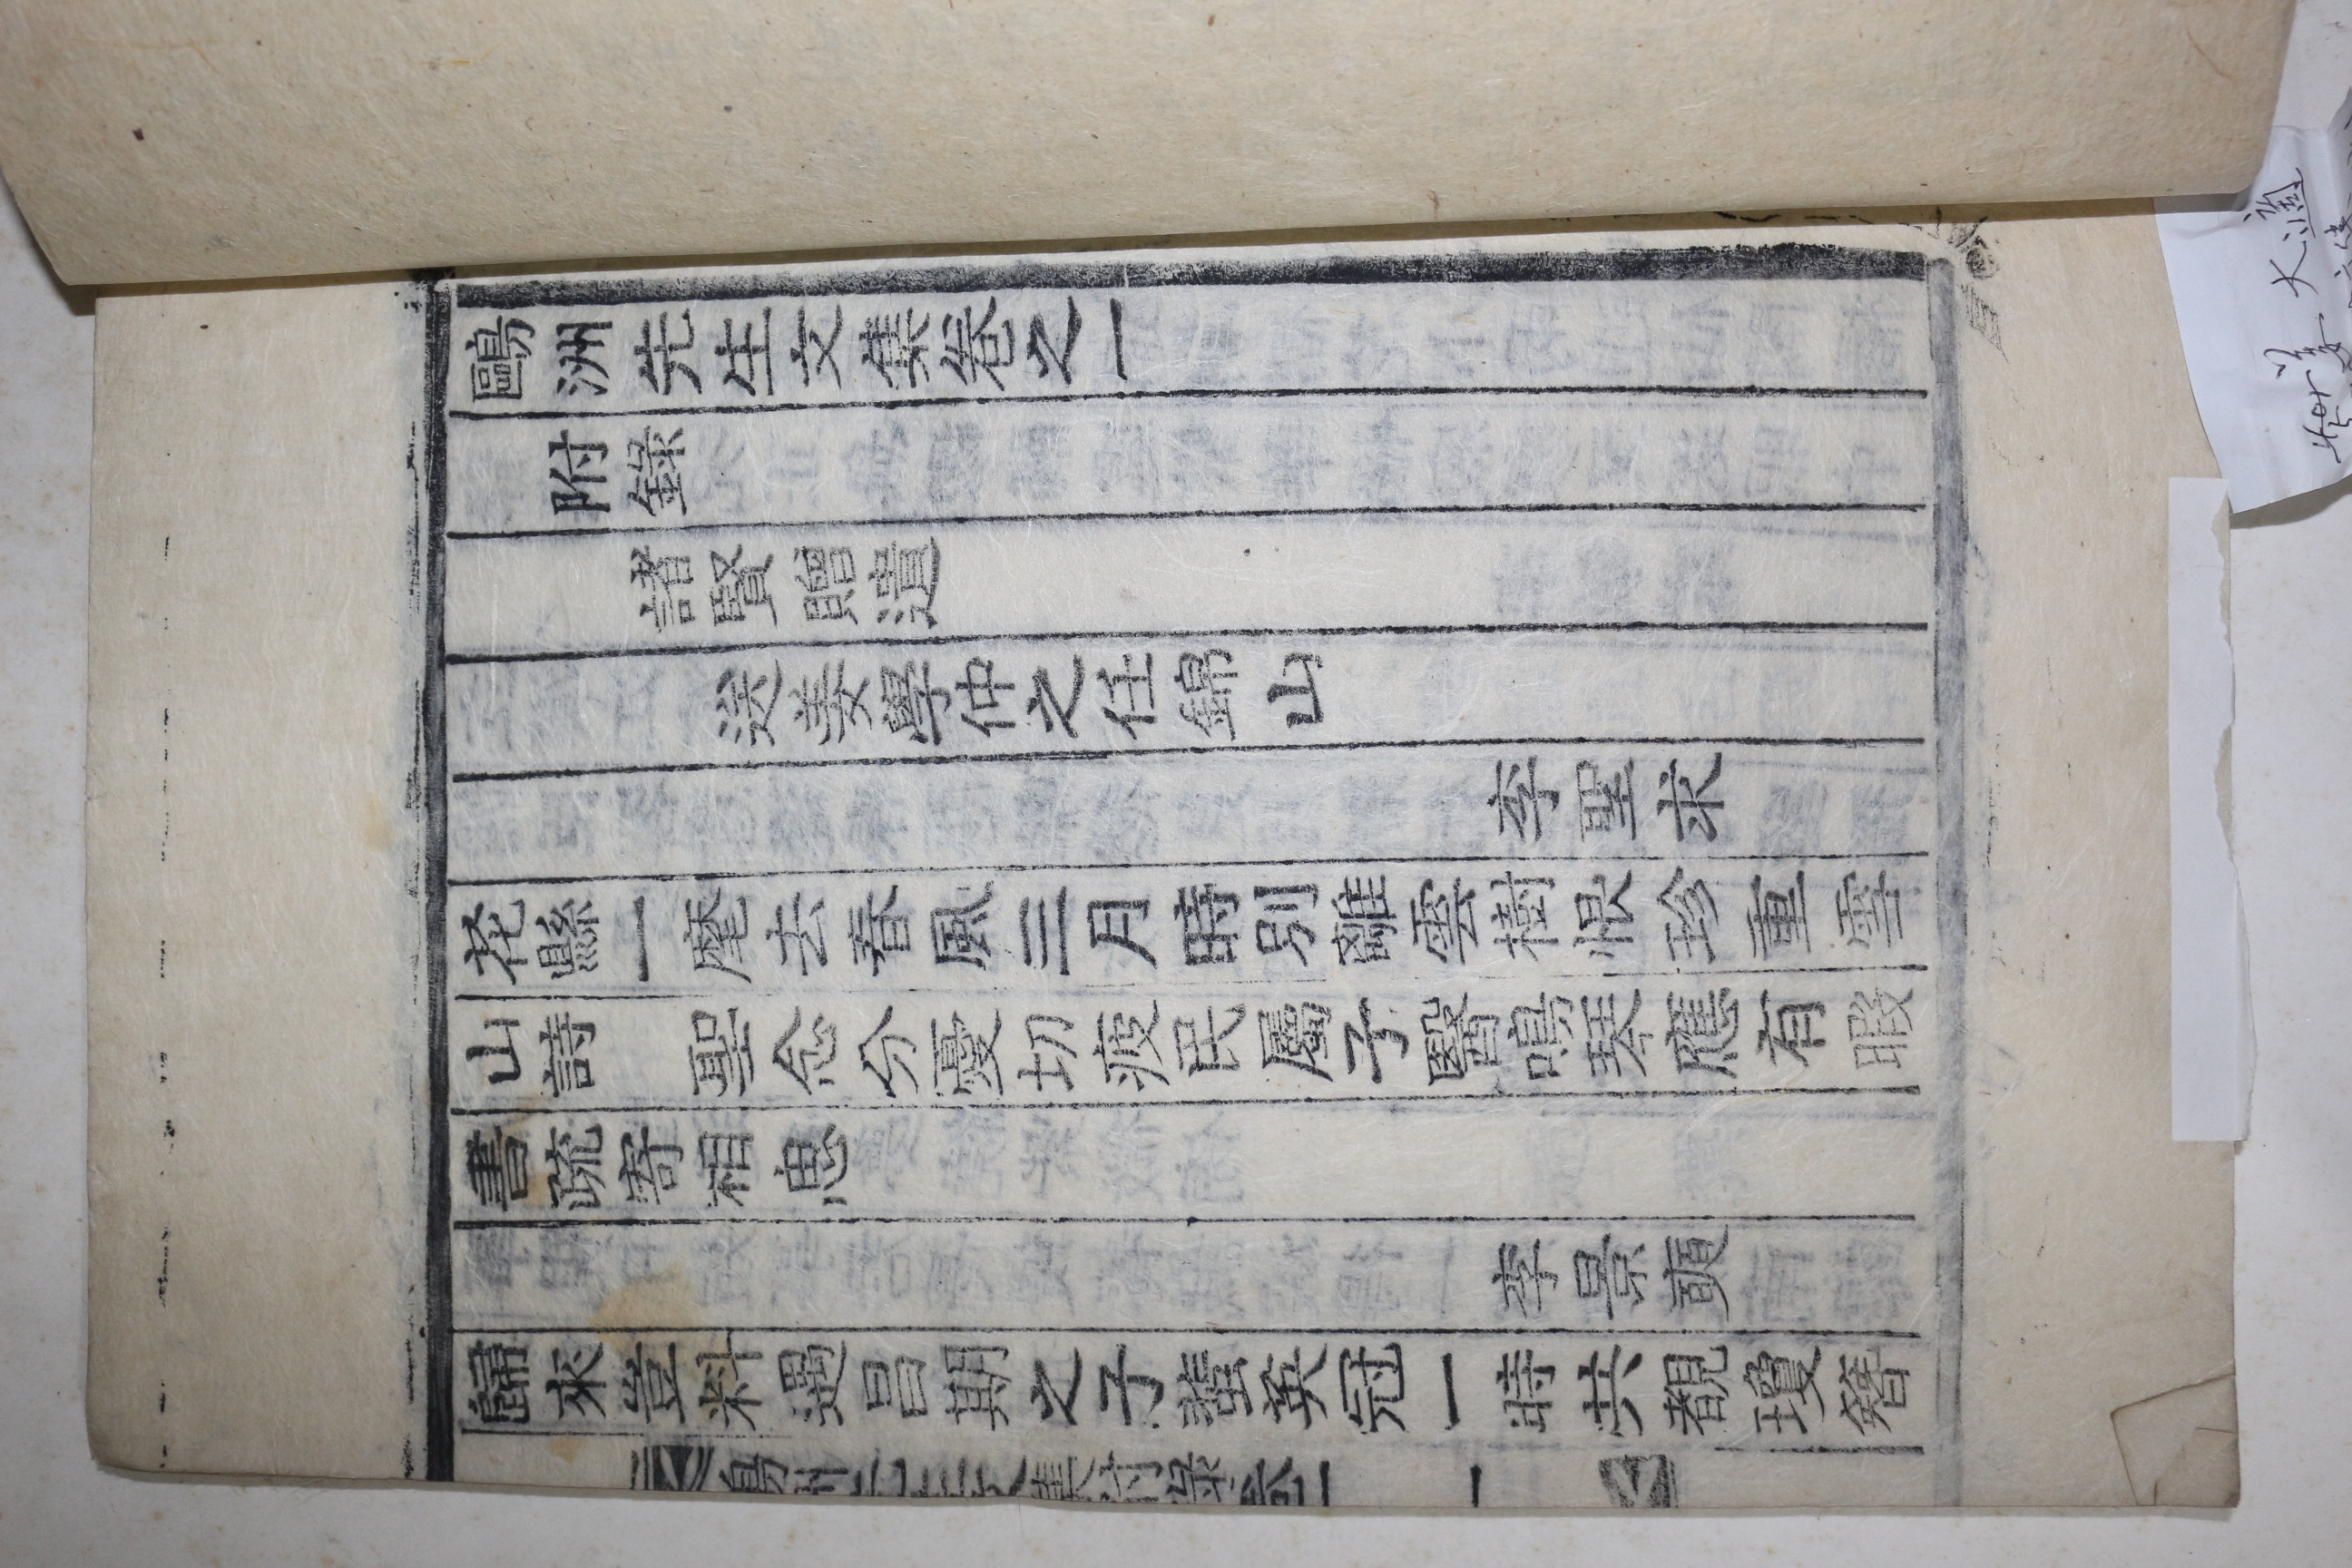 鷗洲先生文集卷之一
附錄
諸賢贈遺
送姜學仲之任錦山
李聖求
花縣一麾去春風三月時別離雲樹恨珍重雪
山詩　聖念分憂切疲民屬子醫鳴琴應有暇
書疏寄相思
李景奭
歸來豈料遇昌期之子蜚英冠一時共覩瓊簪
鷗洲先生文集附錄卷一　一
姜大適